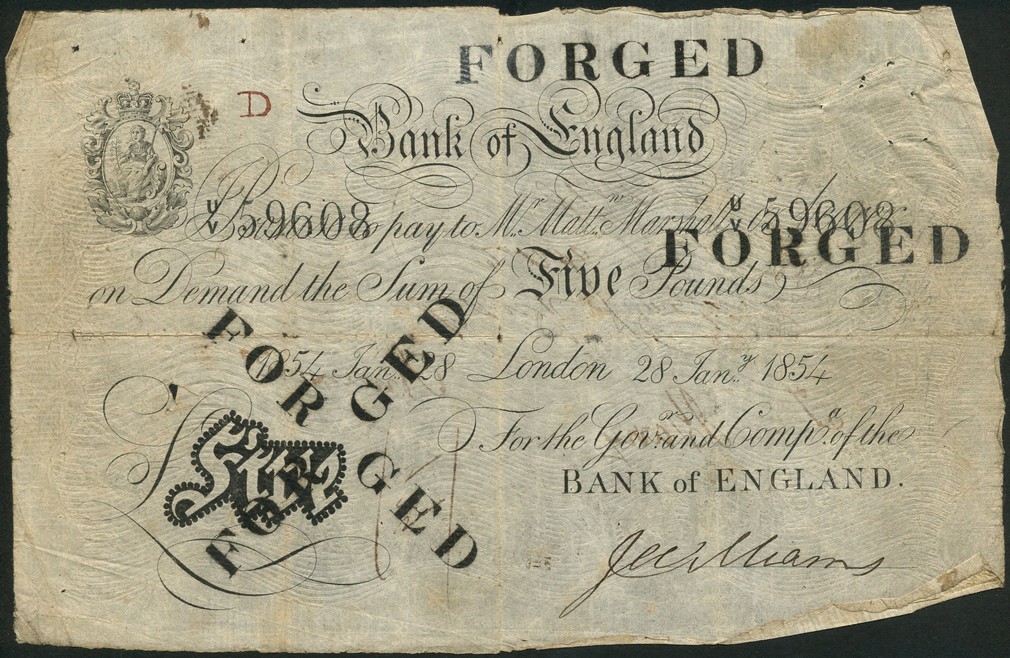 FORGED
D
Bank of England
U/V 59608 U/V 59608
pay to Mr. Matt.w Marshall
FORGED
on Demand the Sum of Five Pounds
FORGED
FORGED
1854 Jan.y 28 London 28 Jan.y 1854
For the Gov.r and Comp.a of the
BANK of ENGLAND.
Five